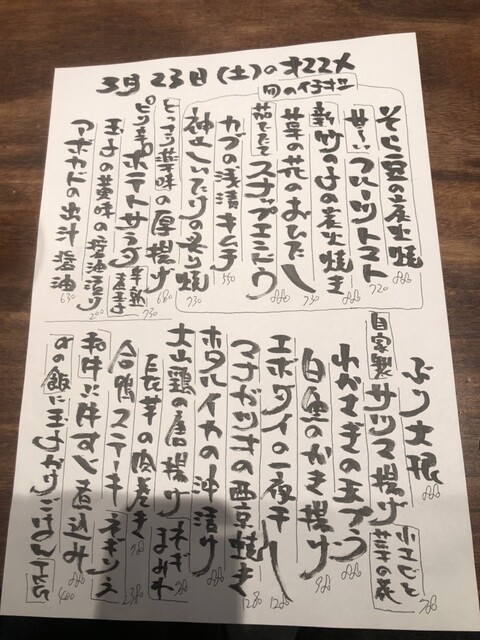 3月23日(土)のオススメ
旬のイチオシ
そら豆の炭火焼 880
甘〜いフルーツトマト 720
新竹の子の炭火焼き 880
菜の花のおひたし 730
茹でたてスナップエンドウ 880
カブの浅漬キムチ 550
神さしいたけの炙り焼 730
どっさり薬味の厚揚げ 680
ピリ辛ポテトサラダ 半熟煮玉子 730
玉子の黄味の醤油漬け 200
アボカドの出汁醤油 630
ぶり大根 880
自家製サツマ揚げ 小エビと菜の花 780
わかさぎの天プラ 880
白魚のかき揚げ 980
エボダイの一夜干し 1280
マナガツオの西京焼き 1280
ホタルイカの沖漬け 880
大山鶏の唐揚げ ネギまみれ
長芋の肉巻き 780
合鴨ステーキ ネギソース 2380
和牛に牛すじ煮込み 880
〆の飯に玉子かけごはん TKG 400